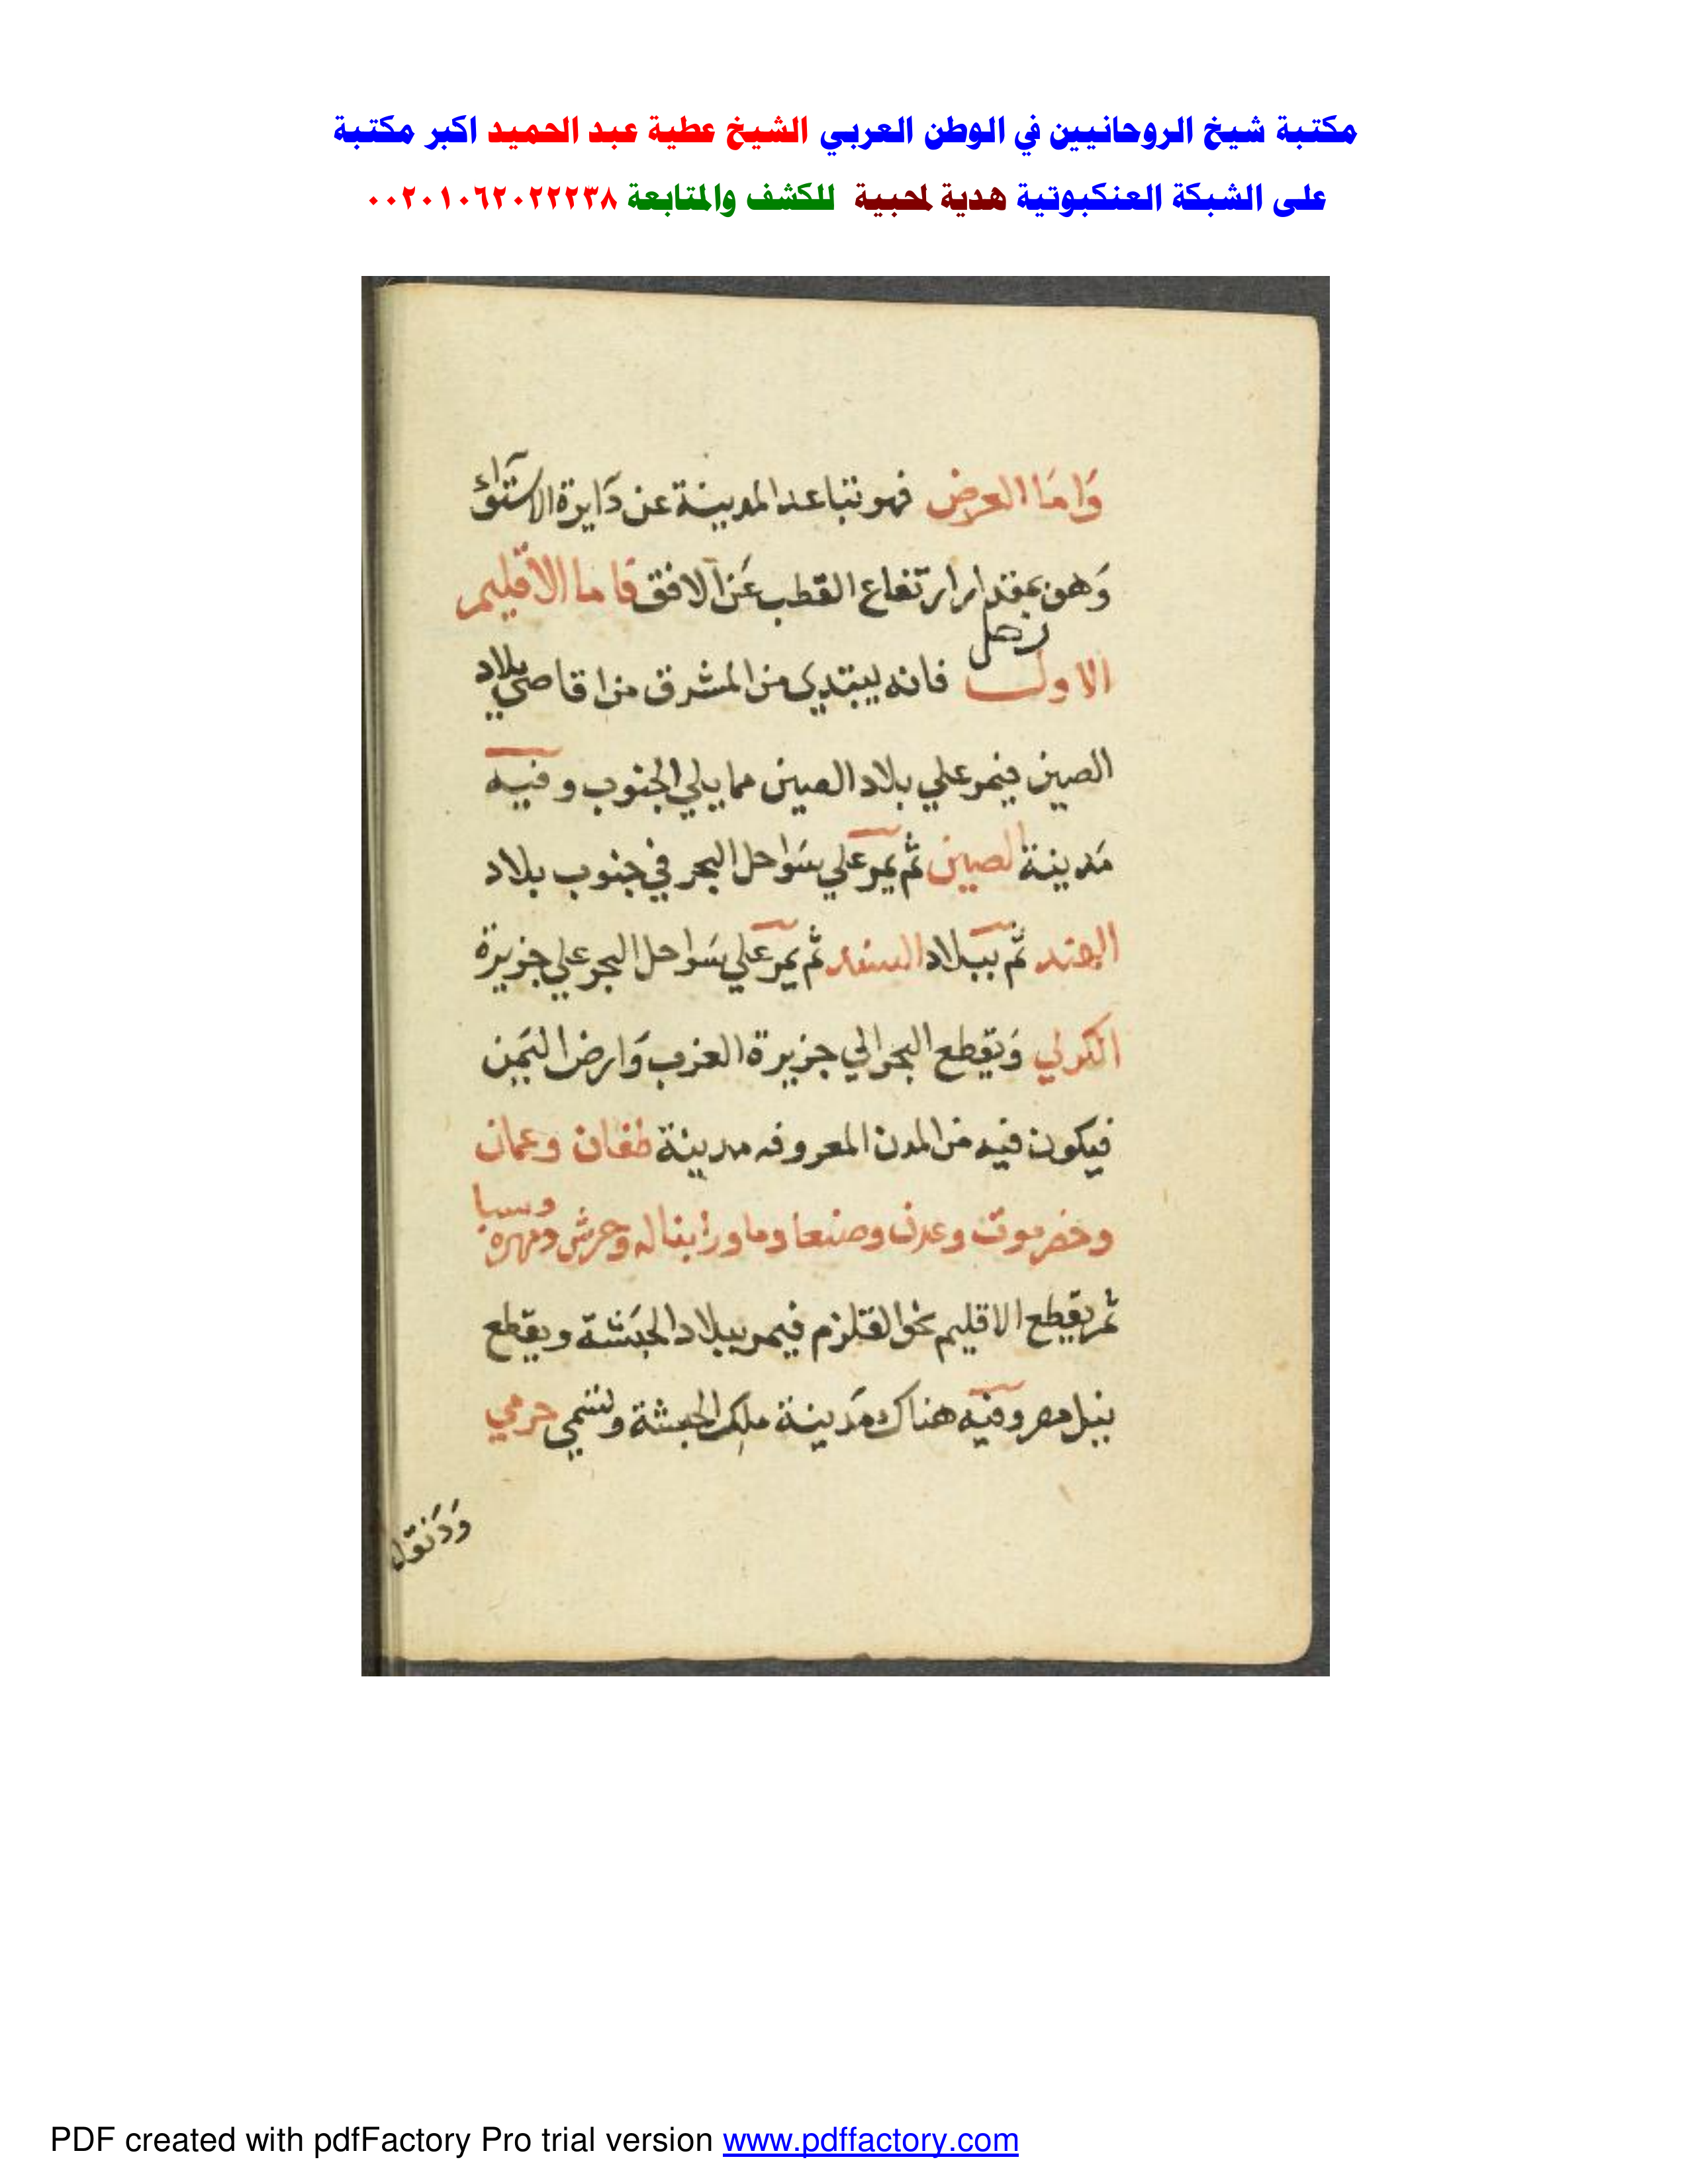 مكتبة شيخ الروحانيين في الوطن العربي الشيخ عطية عبد الحميد اكبر مكتبة
على الشبكة العنكبوتية هدية لمحبية للكشف والمتابعة ٠٠٢٠١٠٦٢٠٢٢٢٣٨
وَامَا العرض فهو تباعد المدينة عن دَايرة الاستوآء
وَهو بمقدار ارتفاع القطب عَن الافق فاما الاقليم
زحل
الاول فانه يبتدي من المشرق من اقاصي بلاد
الصين فيمر علي بلاد الصين مما يلي الجنوب وفيه
مَدينة الصين ثم يمر علي سَواحل البحر في جنوب بلاد
الهند ثم ببلاد السند ثم يمر علي سَواحل البحر علي جزيرة
الكرلي وَيقطع البحر الي جزيرة العرب وَارض اليَمن
فيكون فيه من المدن المعروفه مدينة ظفان وعمان
وحضرموت وعدن وصنعا وما ورا وجرش ومهرة وسبا
ثم يقطع الاقليم نحو القلزم فيمر ببلاد الحبَشة ويقطع
نيل مصر وفيه هناك مَدينة ملك الحبشة وتسمي جرمي
وَدَنقله